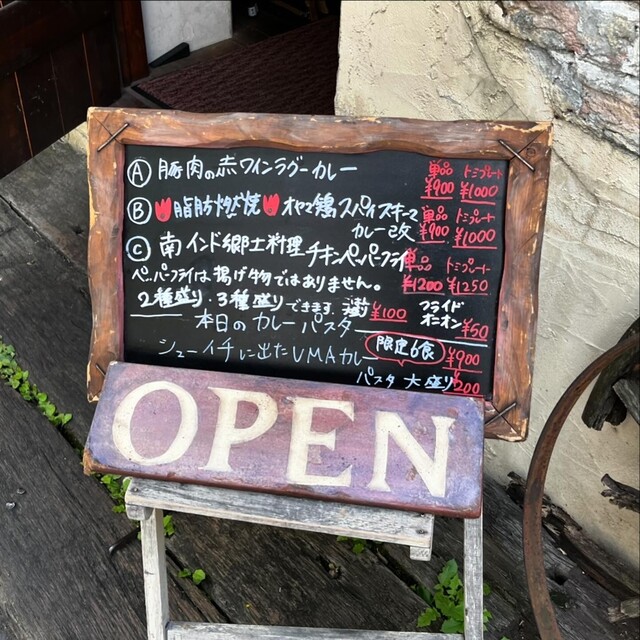 Ⓐ 豚肉の赤ワインラグーカレー 単品 ¥900 トミプレート ¥1000
Ⓑ 脂肪燃焼 オヤマ鶏スパイスキーマ
カレー改 単品 ¥900 トミプレート ¥1000
Ⓒ 南インド郷土料理 チキンペッパーフライ 単品 ¥1200 トミプレート ¥1250
ペッパーフライは、揚げ物ではありません。
2種盛り・3種盛りできます ¥100 フライドオニオン ¥50
本日のカレーパスタ
シューイチに出たUMAカレー 限定6食 ¥900
パスタ 大盛り ¥200
OPEN